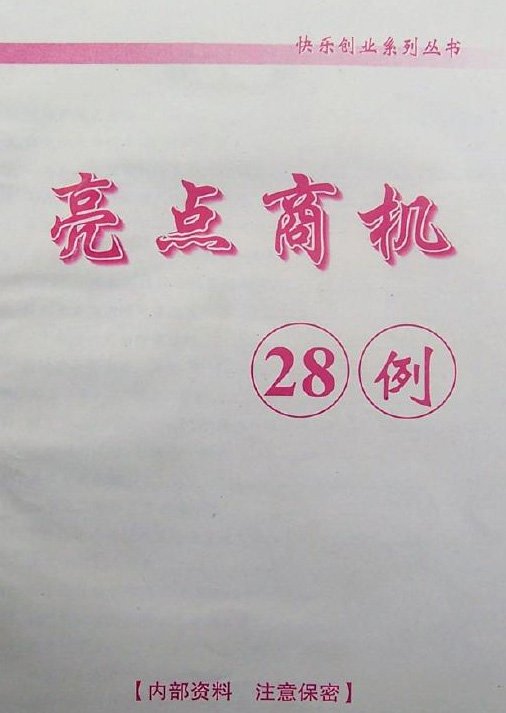 快乐创业系列丛书
亮点商机
28例
【内部资料 注意保密】